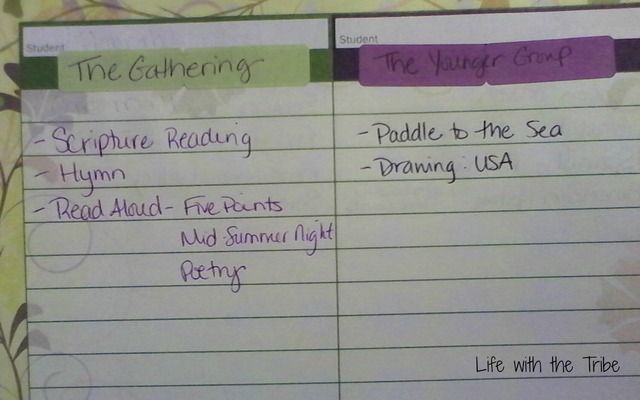 Student
The Gathering
- Scripture Reading
- Hymn
- Read Aloud - Five Points
Mid Summer Night
Poetry
Student
The Younger Group
- Paddle to the Sea
- Drawing: USA
Life with the Tribe